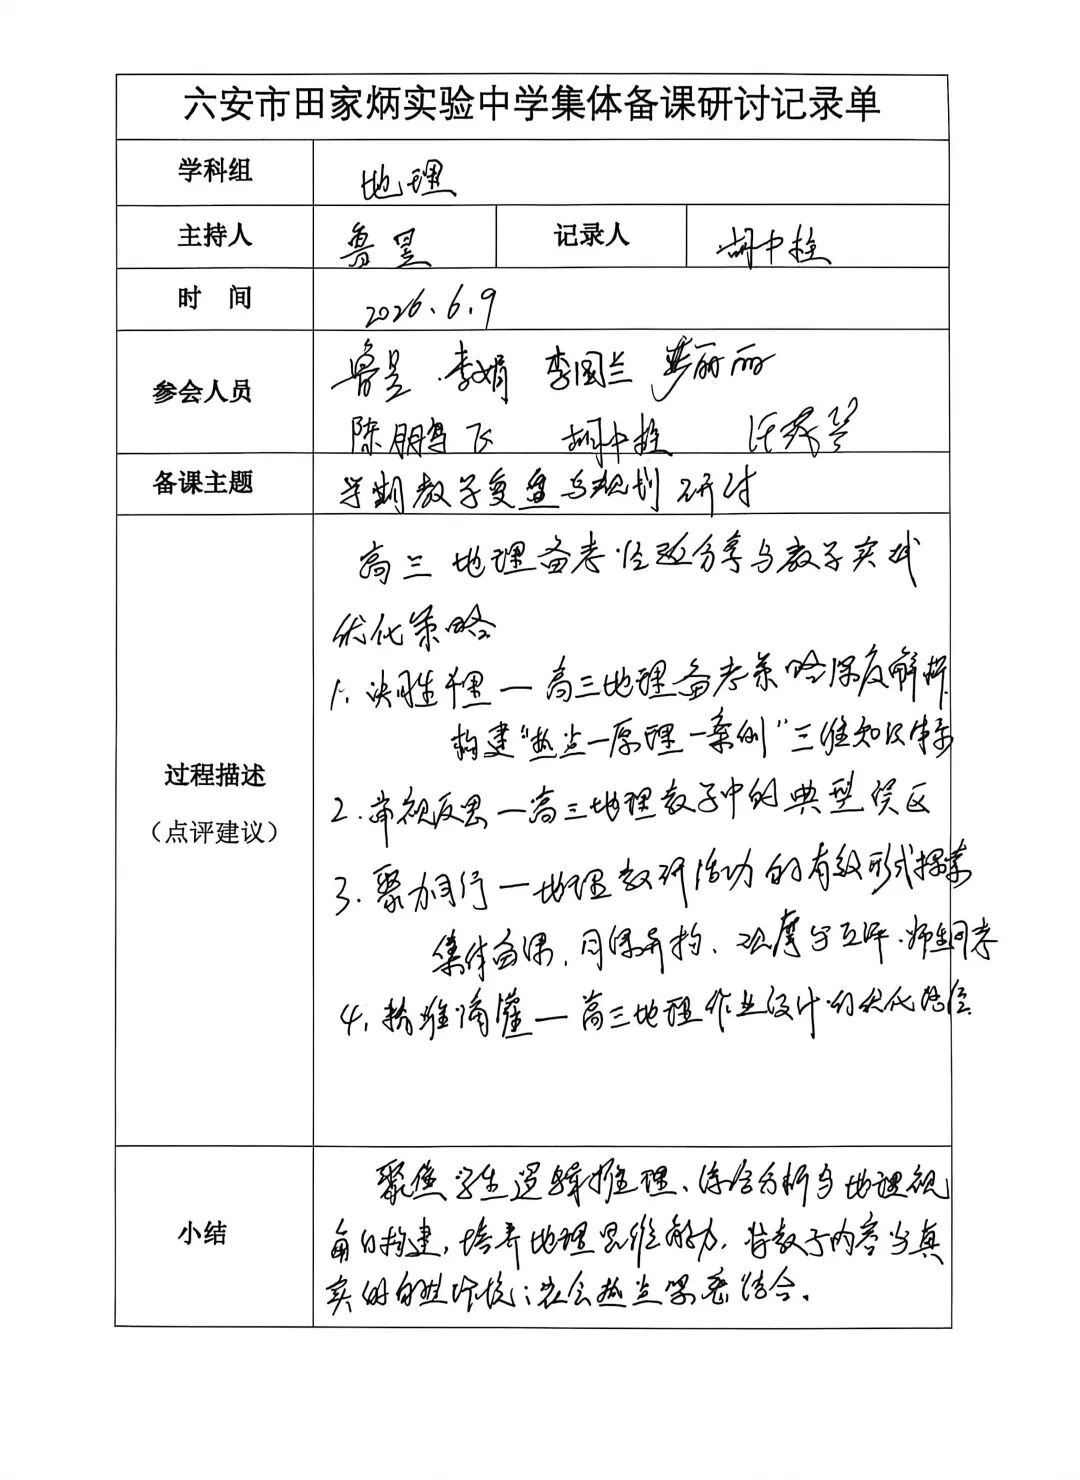 六安市田家炳实验中学集体备课研讨记录单
学科组 地理
主持人 鲁昱 记录人 胡中拴
时 间 2026.6.9
鲁昱 李娟 李国兰 罗丽丽
参会人员
陈鹏飞 胡中拴 汪
备课主题 学期教学复盘与规划研讨
高三地理备考经验分享与教学实践
优化策略
1. 决胜千里—高三地理备考策略深度解析
构建“热点—原理—案例”三维知识体系
过程描述
2. 审视反思—高三地理教学中的典型误区
(点评建议)
3. 聚力同行—地理教研活动的有效形式探索
集体备课、同课异构、观摩与互评、师生同考
4. 精准滴灌—高三地理作业设计的优化路径
聚焦学生逻辑推理、综合分析与地理视
小结
角的构建,培养地理思维能力,将教学内容与真
实的自然环境、社会热点紧密结合。